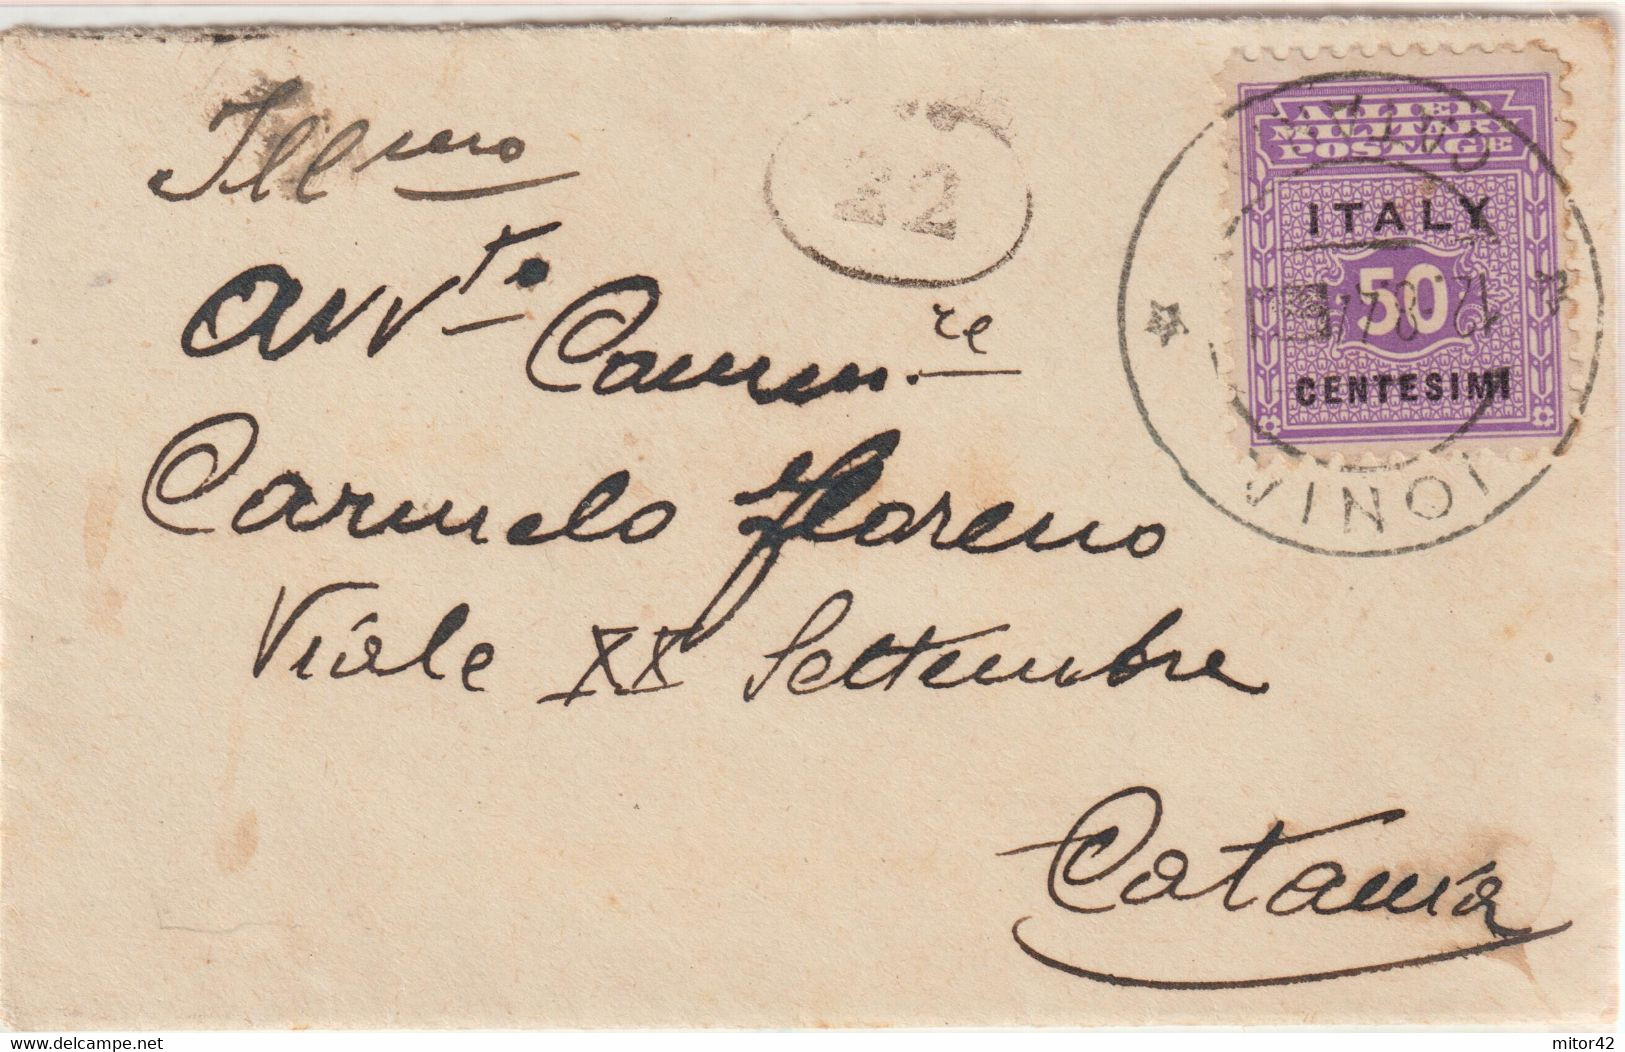 Ill.mo
Avv.to Comm.re
Carmelo Floreno
Viale XX Settembre
Catania
22
ALLIED
MILITARY
POSTAGE
ITALY
50
CENTESIMI
IONIA
www.delcampe.net
mitor42